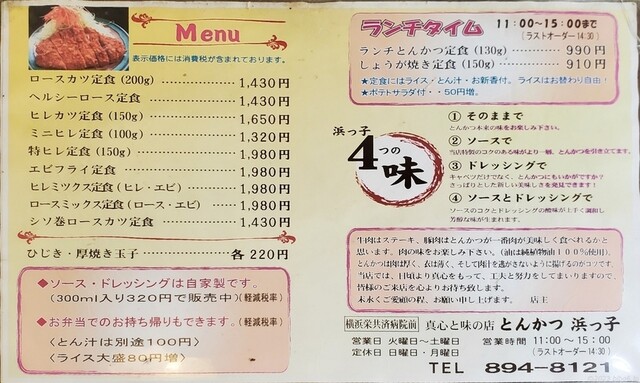 Menu
表示価格には消費税が含まれております。
ロースカツ定食(200g) 1,430円
ヘルシーロース定食 1,430円
ヒレカツ定食(150g) 1,650円
ミニヒレ定食(100g) 1,320円
特ヒレ定食(150g) 1,980円
エビフライ定食 1,980円
ヒレミックス定食(ヒレ・エビ) 1,980円
ロースミックス定食(ロース・エビ) 1,980円
シソ巻ロースカツ定食 1,430円
ひじき・厚焼き玉子 各220円
◆ソース・ドレッシングは自家製です。
(300ml入り320円で販売中)(軽減税率)
◆お弁当でのお持ち帰りもできます。(軽減税率)
<とん汁は別途100円>
<ライス大盛80円増>
ランチタイム 11:00~15:00まで
(ラストオーダー14:30)
ランチとんかつ定食(130g) 990円
しょうが焼き定食(150g) 910円
★定食にはライス・とん汁・お新香付。ライスはお替わり自由!
★ポテトサラダ付・・50円増。
浜っ子
4つの味
① そのままで
とんかつ本来の味をお楽しみ下さい。
② ソースで
当店特製のコクのある味がより一層、とんかつを引き立てます。
③ ドレッシングで
キャベツだけでなく、とんかつにもいかがですか?
さっぱりとした新しい美味しさを発見できます!
④ ソースとドレッシングで
ソースのコクとドレッシングの酸味が上手く調和し
芳醇な味が生まれます。
牛肉はステーキ、豚肉はとんかつが一番肉が美味しく食べれるかと
思います。肉の味をお楽しみ下さい。(油は純植物油100%使用)。
とんかつは肉は厚く、衣は薄く、そして肉汁を逃がさないように揚げるのがコツです。
当店では、日頃より真心をもって、工夫と努力をしてまいりますので、
皆様のご来店を心よりお待ち致しております。
末永くご愛顧の程、お願い申し上げます。 店主
横浜栄共済病院前 真心と味の店 とんかつ 浜っ子
営業日 火曜日~土曜日 営業時間 11:00~15:00
定休日 日曜日・月曜日 (ラストオーダー14:30)
TEL 894-8121